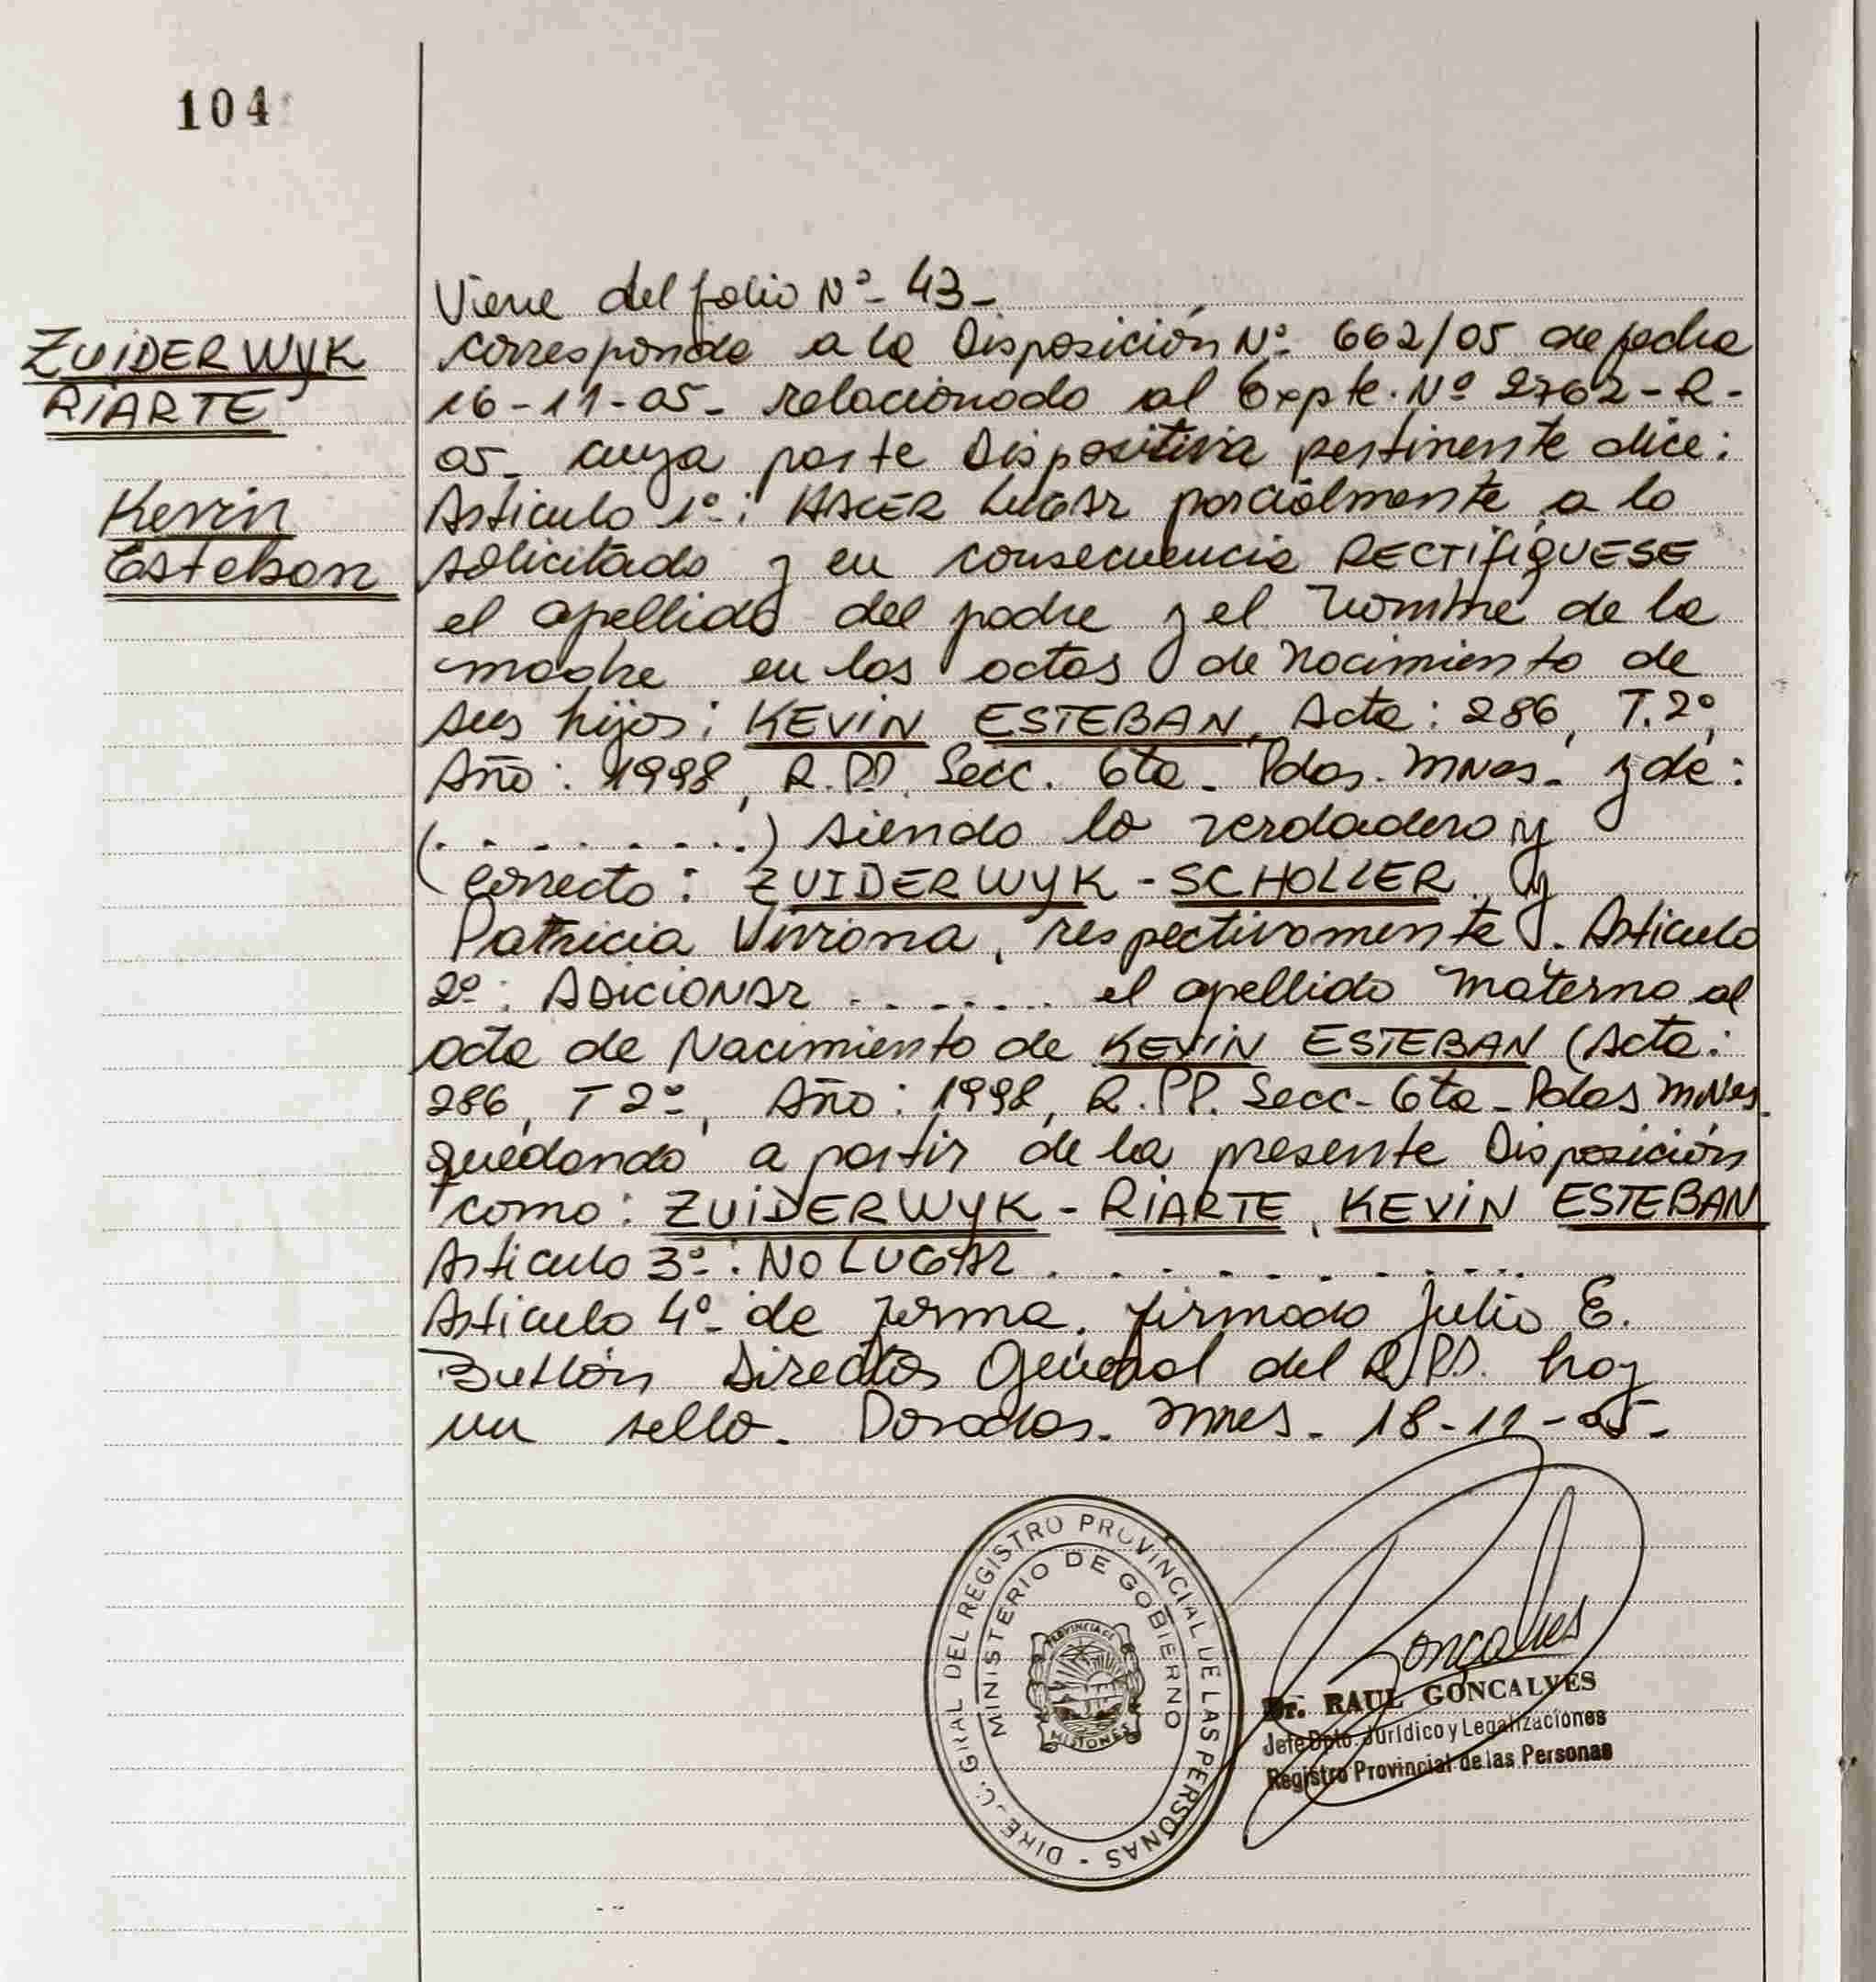 104
ZUIDERWYK
RIARTE
Kevin
Esteban
Viene del folio Nº- 43-
corresponde a la Disposición Nº 662/05 de fecha
16-11-05- relacionado al Expte. Nº 2762-R-
05- cuya parte Dispositiva pertinente dice:
Articulo 1º: HACER LUGAR parcialmente a lo
solicitado y en consecuencia RECTIFIQUESE
el apellido del padre y el nombre de la
madre en los actas de nacimiento de
sus hijos: KEVIN ESTEBAN, Acta: 286, T.2º,
Año: 1998, R.P.P. Secc. 6ta- Pdas. Mnes- y de:
(. . . . . . . .) siendo lo verdadero y
correcto: ZUIDERWYK-SCHOLLER y
Patricia Viviana, respectivamente. Articulo
2º: ADICIONAR . . . . . . el apellido materno al
acta de Nacimiento de KEVIN ESTEBAN (Acta:
286, T 2º, Año: 1998, R.PP. Secc-6ta-Pdas Mnes.
quedando a partir de la presente Disposición
como: ZUIDERWYK-RIARTE, KEVIN ESTEBAN
Articulo 3º: NO LUGAR . . . . . . . . . . .
Articulo 4º- de forma. firmado Julio E.
Director General del R.P.P. hay
un sello. Posadas. Mnes- 18-11-05-
DIREC. GRAL DEL REGISTRO PROVINCIAL DE LAS PERSONAS -
MINISTERIO DE GOBIERNO
PROVINCIA DE
MISIONES
Goncalves
Dr. RAUL GONCALVES
Jefe Dpto. Jurídico y Legalizaciones
Registro Provincial de las Personas